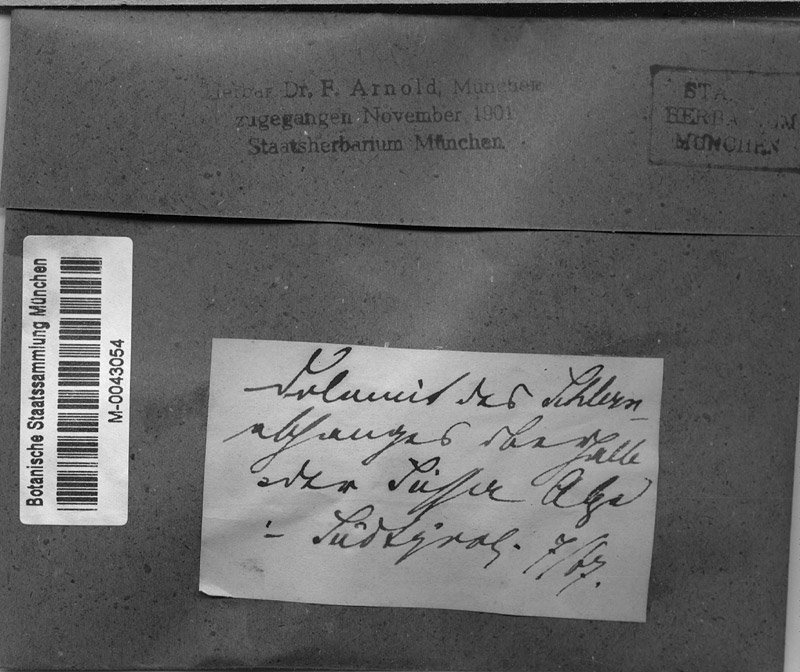 Herbar Dr. F. Arnold, München
zugegangen November 1901
Staatsherbarium München
STA
HERBA UM
MÜNCHEN
Botanische Staatssammlung München
M-0043054
Dolomit des Schlern-
abhanges oberhalb
der Seisser Alpe
in Südtyrol. 7/67.